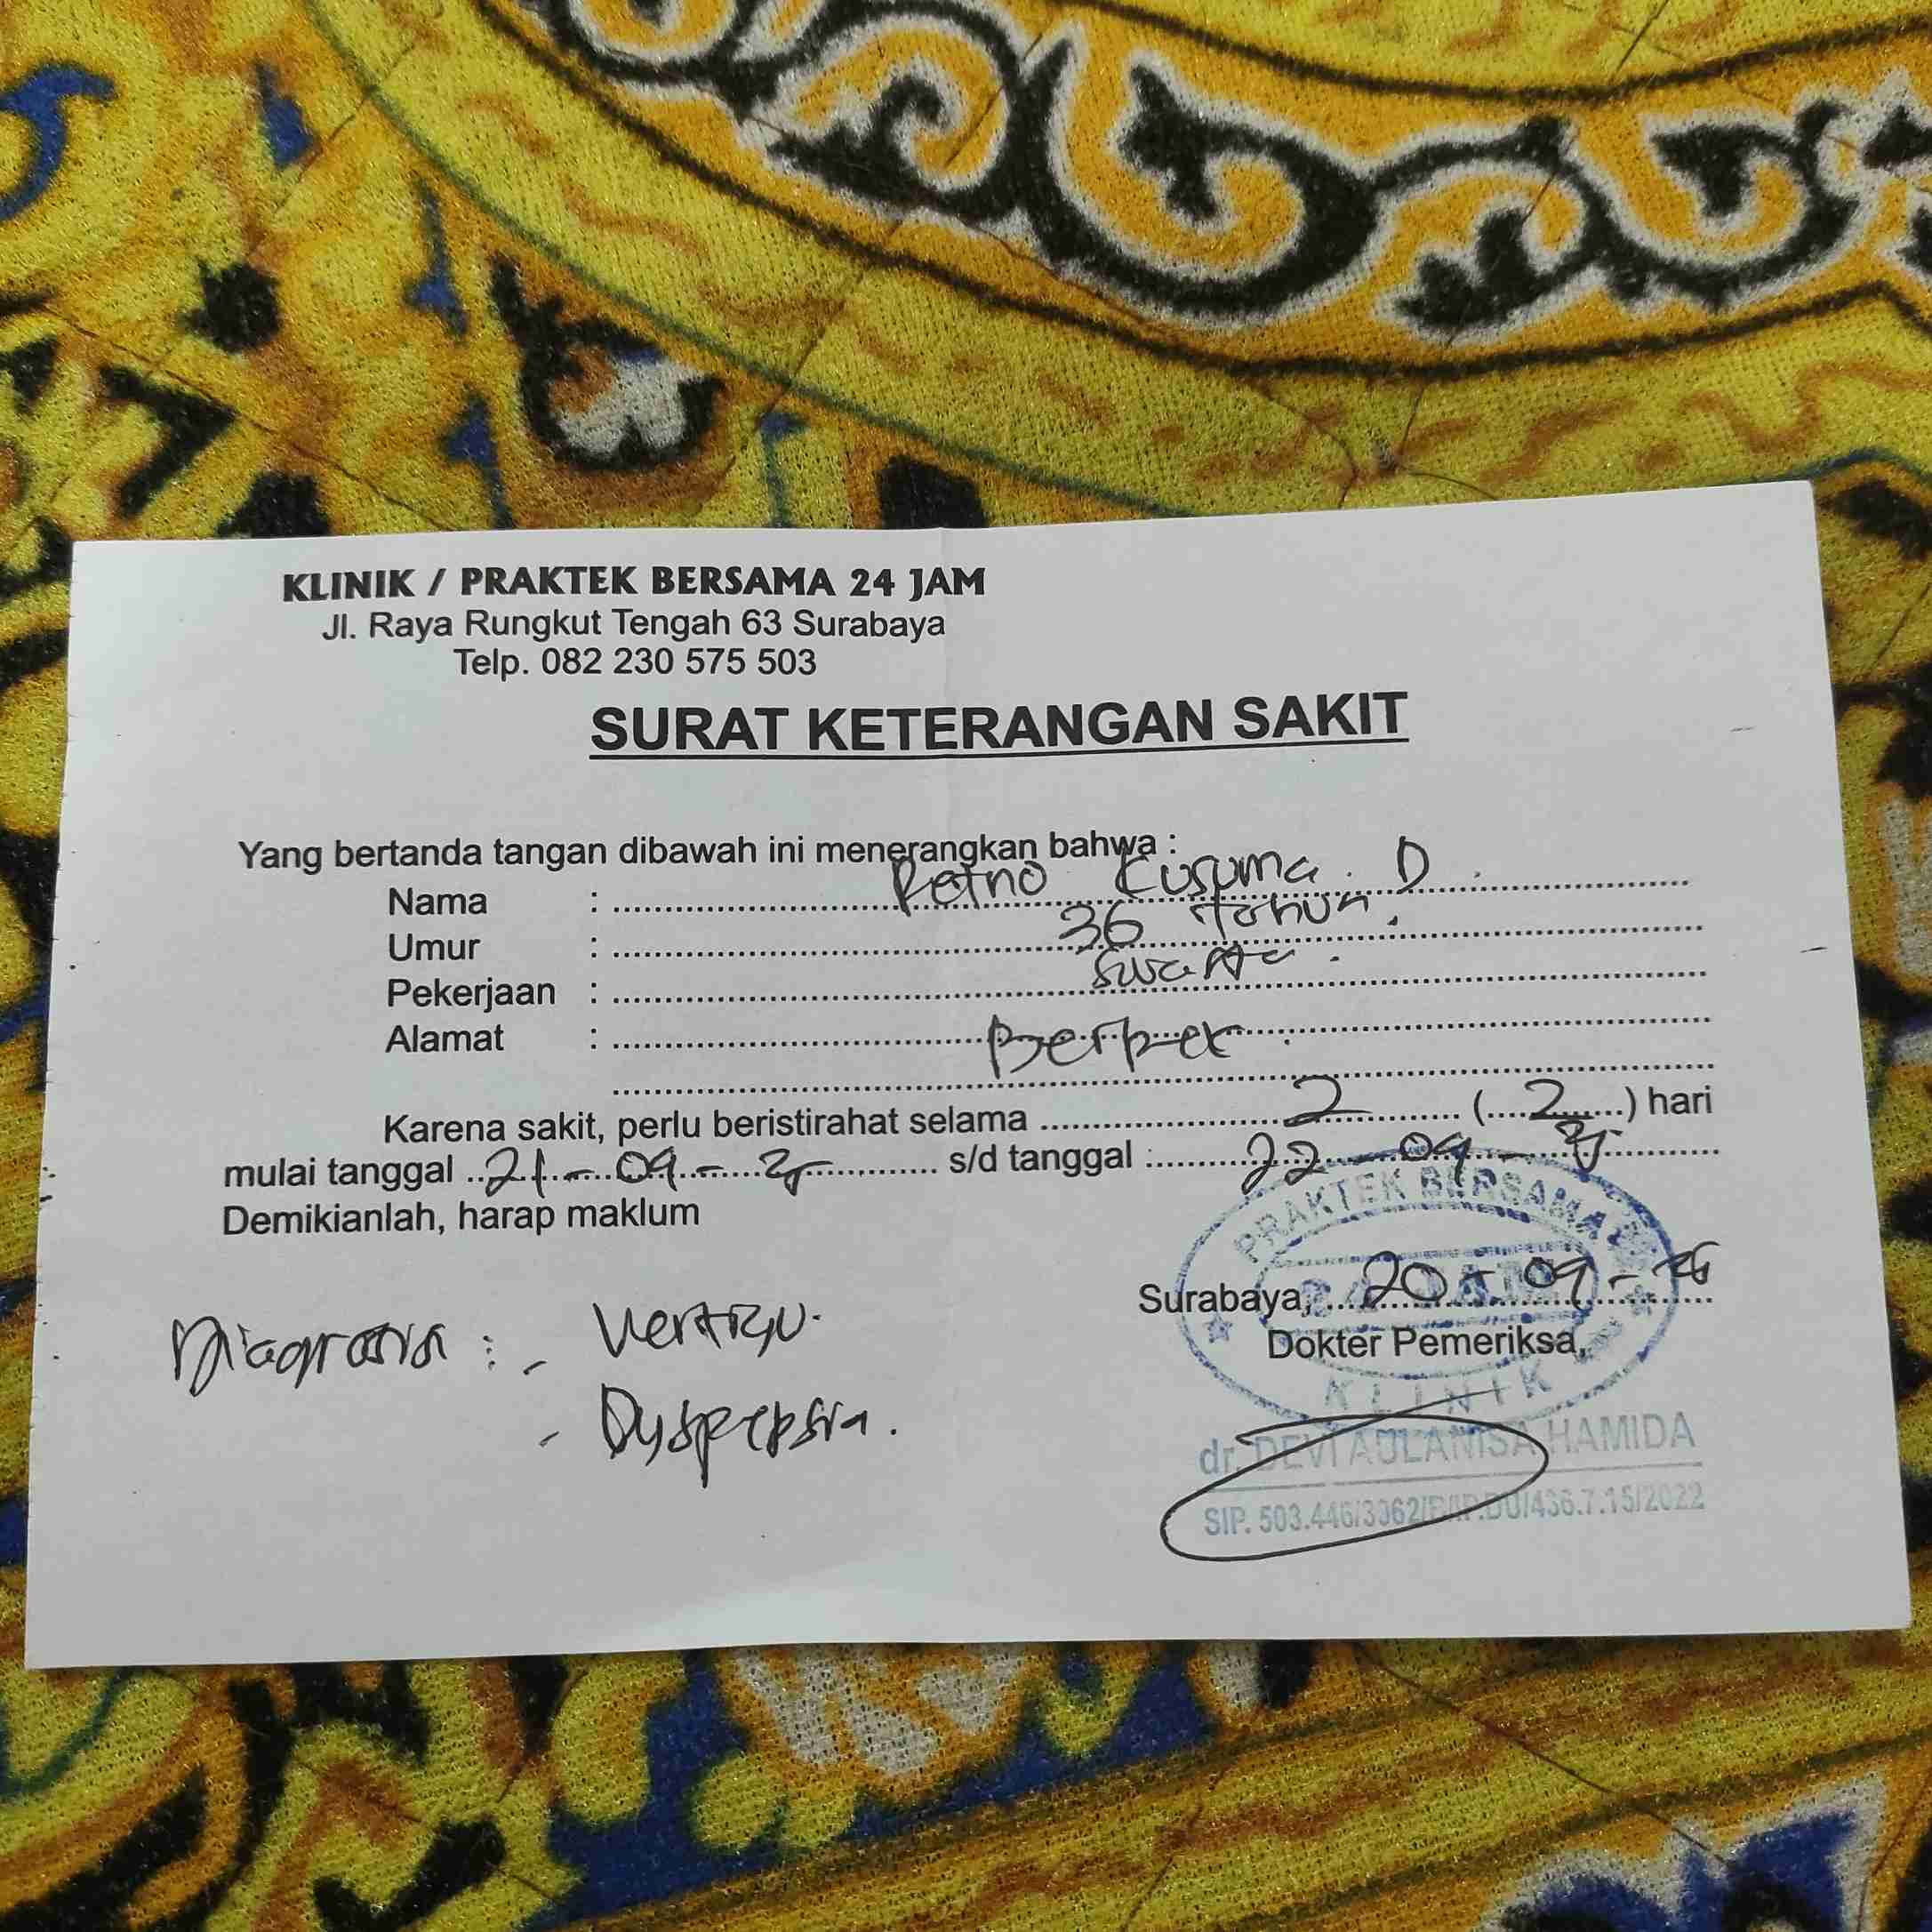 KLINIK / PRAKTEK BERSAMA 24 JAM
Jl. Raya Rungkut Tengah 63 Surabaya
Telp. 082 230 575 503
SURAT KETERANGAN SAKIT
Yang bertanda tangan dibawah ini menerangkan bahwa :
Nama : Retno Kusuma. D.
Umur : 36 tahun.
Pekerjaan : Swasta.
Alamat : Berbek.
Karena sakit, perlu beristirahat selama 2 (2) hari
mulai tanggal 21-09-25 s/d tanggal : 22-09-25
Demikianlah, harap maklum
PRAKTEK BERSAMA
24 JAM
KLINIK
Surabaya, 20-09-
Dokter Pemeriksa,
Diagnosia : - Vertigo.
- Dyspepsia.
dr. DEVI AULANISA HAMIDA
SIP. 503.446/3362/ /436.7.15/2022